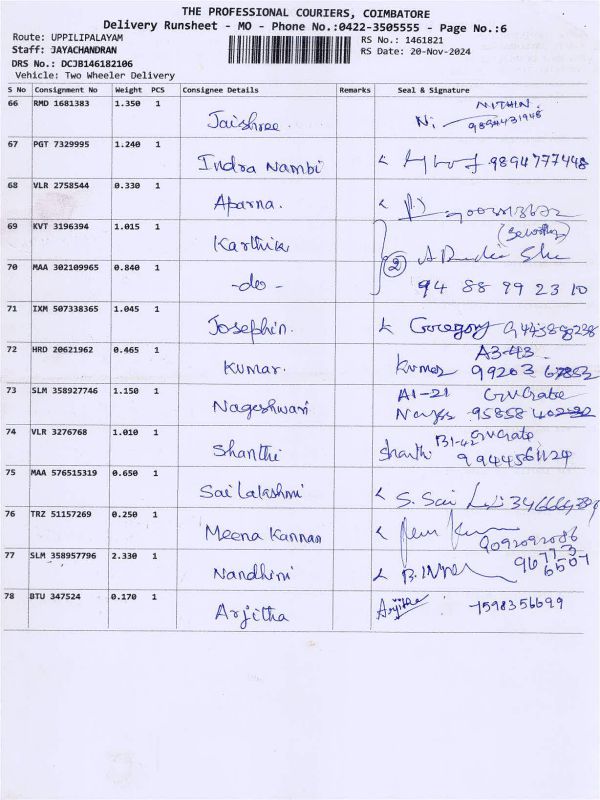 THE PROFESSIONAL COURIERS, COIMBATORE
Delivery Runsheet - MO - Phone No.:0422-3505555 - Page No.:6
Route: UPPILIPALAYAM
RS No.: 1461821
Staff: JAYACHANDRAN
RS Date: 20-Nov-2024
DRS No.: DCJB146182106
Vehicle: Two Wheeler Delivery
S No Consignment No Weight PCS Consignee Details Remarks Seal & Signature
66 RMD 1681383 1.350 1 Jaishree. Ni NITHIN.
67 PGT 7329995 1.240 1 Indra Nambi 9894777448
68 VLR 2758544 0.330 1 Aparna.
69 KVT 3196394 1.015 1 Karthik
70 MAA 302109965 0.840 1 -do- 2 94 88 99 23 10
71 IXM 507338365 1.045 1 Josephin. Gregory
72 HRD 20621962 0.465 1 Kumar. Kumar A3-43
73 SLM 358927746 1.150 1 Nageshwari A1-21
74 VLR 3276768 1.010 1 Shanthi Shanthi B1-42
75 MAA 576515319 0.650 1 Sai Lakshmi S. Sai
76 TRZ 51157269 0.250 1 Meena Kannan 9092092086
77 SLM 358957796 2.330 1 Nandhini 96773 6507
78 BTU 347524 0.170 1 Arjitha Arjitha 7598356699